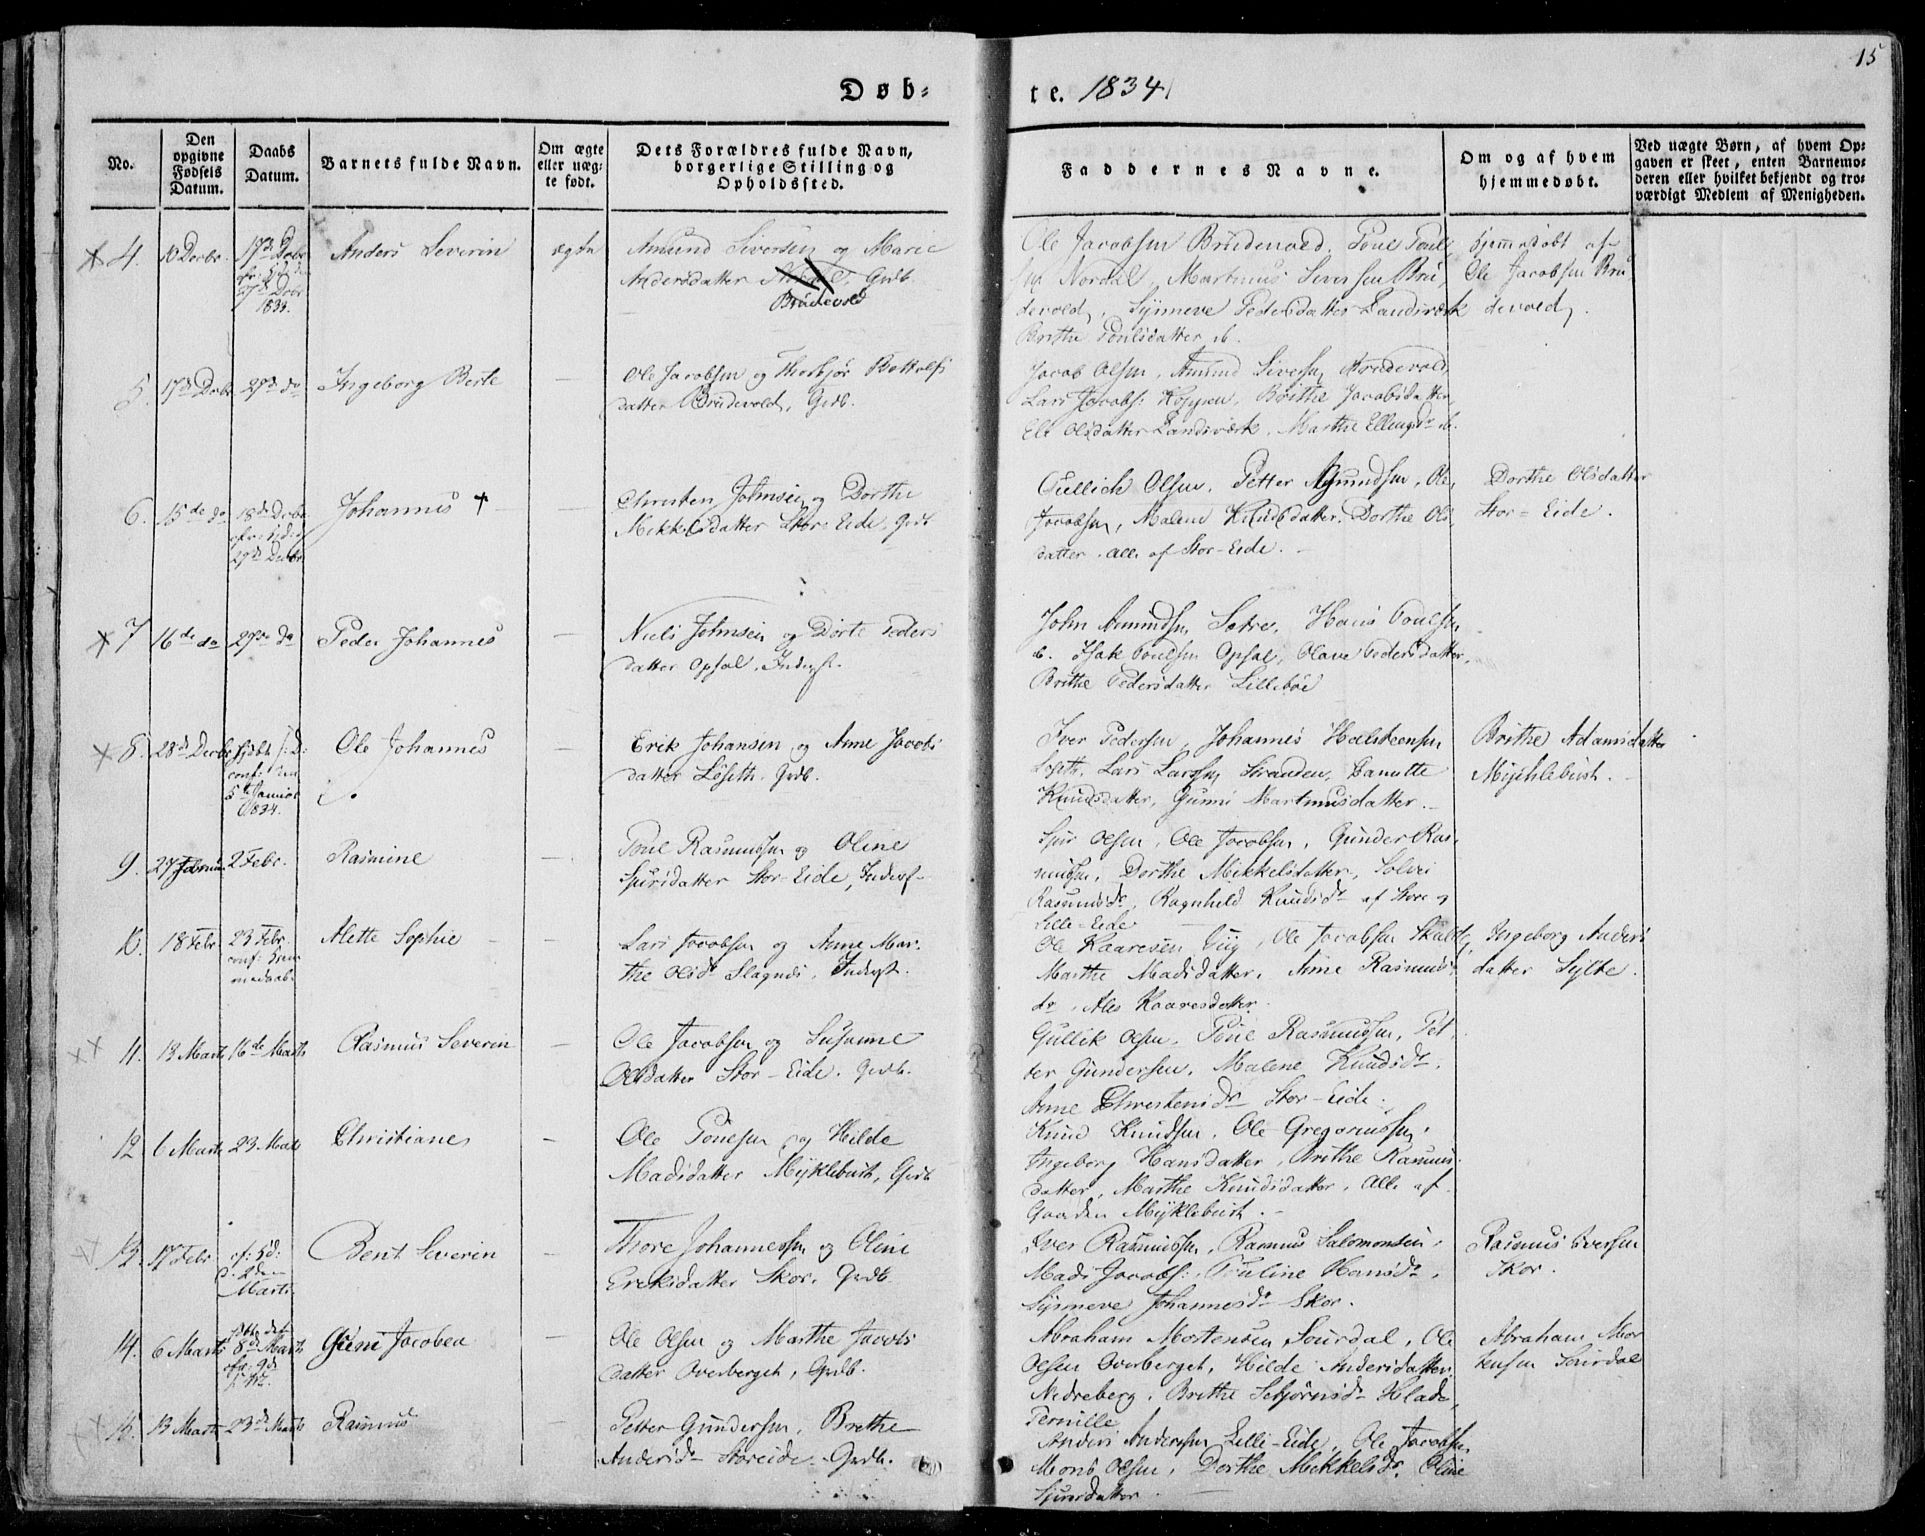 15
Døb-
te. 1834
No.
Den opgivne Fødsels Datum.
Daabs Datum.
Barnets fulde Navn.
Om ægte eller uæg-te født.
Dets Forældres fulde Navn, borgerlige Stilling og Opholdssted.
Faddernes Navne.
Om og af hvem hjemmedøbt.
Ved uægte Børn, af hvem Op-gaven er skeet, enten Barnemo-deren eller hvilket bekjendt og tro-værdigt Medlem af Menigheden.
4. 10 Decbr. 17de Decbr
1833.
Anders Severin
ægte
Amund Siversen og Marie
Andersdatter Grdb.
Brudevold
Ole Jacobsen Brudevold, Poul Poul
sen Nordal, Martinus Siversen Bru
devold, Synneve Pedersdatter Landsværk
Brithe Poulsdatter ib.
hjemmedøbt af
Ole Jacobsen Bru
devold.
5. 17de Decbr 29de do
Ingeborg Berte
Ole Jacobsen og Thorbjør Bottolfs
datter Brudevold, Grdb.
Jacob Olsen, Amund Siversen Brudevold,
Lars Jacobs: Hoggen, Brithe Jacobsdatter
Eli Olsdatter Landsværk, Marthe Ellingsdr ib.
6. 15de do 18de Decbr
29de Decbr
Johannes +
Christen Johnsen og Dorthe
Mikkelsdatter Stor-Eide, Grdb
Gullich Olsen, Petter Gundersen, Ole
Jacobsen, Malene Knudsdatter, Dorthe Ols
datter, alle af Stor-Eide.
Dorthe Olsdatter
Stor-Eide.
7 16de do 29de do
Peder Johannes
Niels Johnsen og Dorte Peders
datter Opsal, Inderst.
John Amundsen Sætre, Hans Poulsen
ib. Isak Poulsen Opsal, Olave Pedersdatter,
Brithe Pedersdatter Lillebøe
8. 28de Decbr
conf: den
5te Januar
1834.
Ole Johannes
Erik Johansen og Anne Jacobs
datter Løseth. Grdb.
Iver Pedersen, Johannes Halsteensen
Løseth, Lars Larsen Stranden, Danutte
Knudsdatter, Gunni Martinusdatter.
Brithe Adamsdatter
Myklebust.
9. 27 2 Febr.
Rasmine
Poul Rasmussen og Oline
Sjursdatter Stor-Eide, Inderst
Sjur Olsen, Ole Jacobsen, Gunder Ras
mussen, Dorthe Mikkelsdatter, Solvei
Rasmusdr, Ragnhild Knudsdr af Store og
Lille-Eide
10. 18 Febr. 23 Febr.
conf: hjem
medaab.
Alette Sophie
Lars Jacobsen og Anne Mar
the Olsdr Slagnes, Inderst.
Ole Kaaresen Viig, Ole Jacobsen
Marthe Madsdatter, Anne Rasmus
dr, Ales Kaaresdatter.
Ingeborg Anders
datter Sylte.
11. 13 Marts 16de Marts
Rasmus Severin
Ole Jacobsen og Susanne
Olsdatter Stor-Eide. Grdb.
Gullik Olsen, Poul Rasmussen, Pet
ter Gundersen, Malene Knudsdr,
Anne Christensdr Stor-Eide.
12 6 Marts 23 Marts
Christiane
Ole Poulsen og Hilde
Madsdatter Myklebust, Grdb
Knud Knudsen, Ole Gregoriussen,
Ingeborg Hansdatter, Brithe Rasmus
datter, Marthe Knudsdatter, alle af
Gaarden Myklebust.
13. 17 Febr
Marts
Bent Severin
Thore Johannessen og Oline
Eriksdatter Skor. Grdb.
Iver Rasmussen, Rasmus Salomonsen,
Mads Jacobs:, Pauline Hansdr,
Synneve Johannesdr Skor.
Rasmus Iversen
Skor.
14. 6 Marts 8de Marts
Guni Jacobea
Ole Olsen og Marthe Jacobs
datter Overberget, Grdb.
Abraham Mortensen Sourdal, Ole
Olsen Overberget, Hilde Andersdatter
Nedreberg, Brithe Hlade,
Pernille
Abraham Mor
tensen Sourdal
15. 13 Marts 23de Marts
Rasmus
Petter Gundersen, Brethe
Andersdr Storeide. Grdb.
Anders Andersen Lille-Eide, Ole Jacobsen
Mons Olsen, Dorthe Mikkelsdr, Oline
Sjursdatter